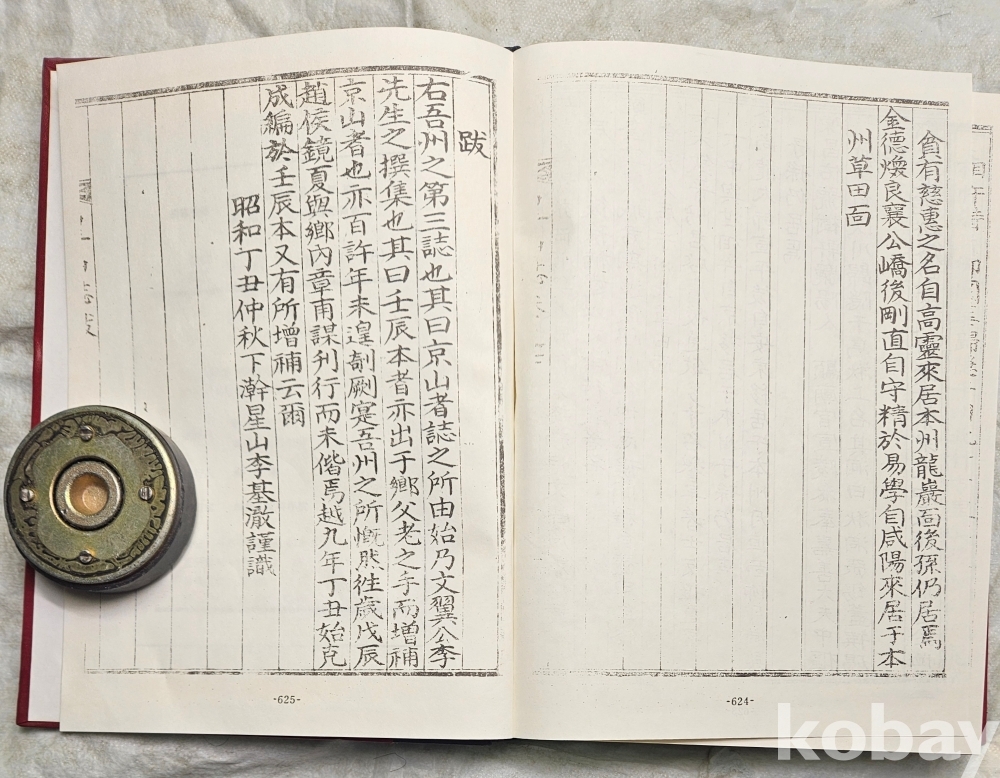 貧有慈惠之名自高靈來居本州龍巖面後孫仍居焉
金德煥良襄公嶠後剛直自守精於易學自咸陽來居于本
州草田面
-624-
跋
右吾州之第三誌也其曰京山者誌之所由始乃文翼公李
先生之撰集也其曰壬辰本者亦出于鄉父老之手而增補
京山者也亦百許年未遑剞劂寔吾州之所慨然徃歲戊辰
趙侯鏡夏與鄉內章甫謀刋行而未偕焉越九年丁丑始克
成編於壬辰本又有所增補云爾
昭和丁丑仲秋下澣星山李基澈謹識
-625-
kobay